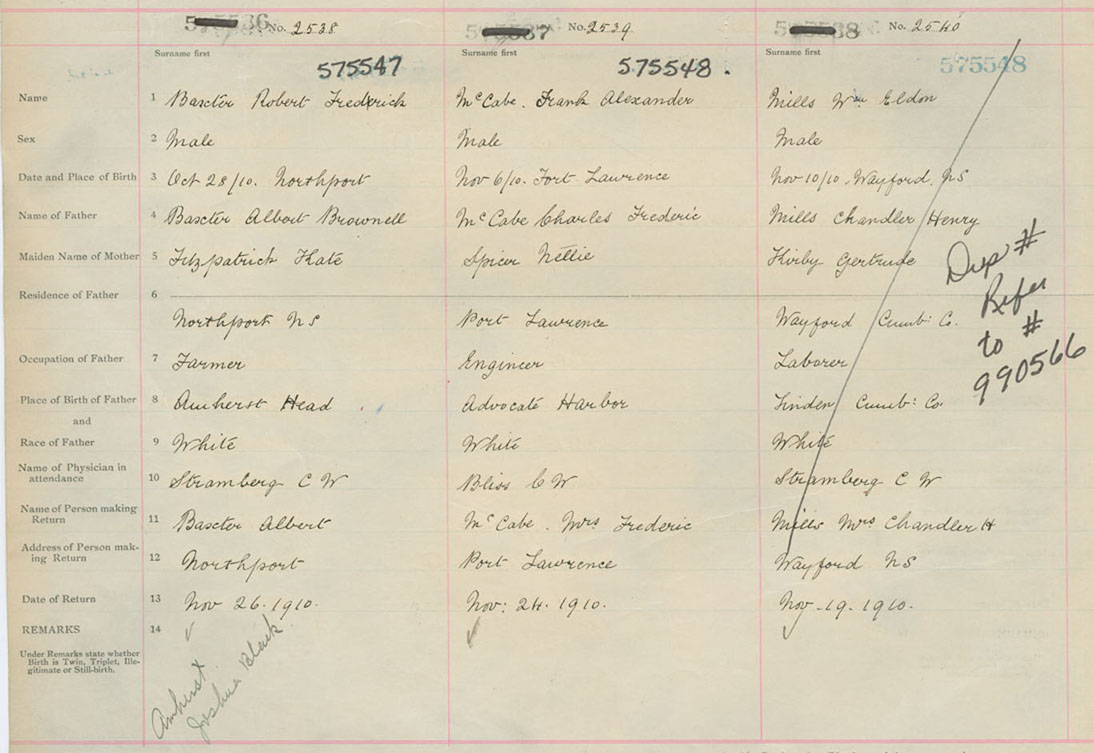 No. 2538 No. 2539 No. 2540
Surname first Surname first Surname first
575547 575548. 575548
Name 1 Baxter Robert Frederick McCabe. Frank Alexander Mills Wm Eldon
Sex 2 Male Male Male
Date and Place of Birth 3 Oct 28/10. Northport Nov 6/10. Fort Lawrence Nov 10/10. Wayford, NS
Name of Father 4 Baxter Albert Brownell McCabe Charles Frederic Mills Chandler Henry
Maiden Name of Mother 5 Fitzpatrick Kate Spicer Nettie Kirby Gertrude
Residence of Father 6
Northport NS Fort Lawrence Wayford Cumb: Co.
Occupation of Father 7 Farmer Engineer Laborer
Place of Birth of Father 8 Amherst Head Advocate Harbor Linden Cumb: Co.
and
Race of Father 9 White White White
Name of Physician in
attendance 10 Stramberg C W Bliss C W Stramberg C W
Name of Person making
Return 11 Baxter Albert McCabe. Mrs Frederic Mills Mrs Chandler H
Address of Person mak-
ing Return 12 Northport Fort Lawrence Wayford NS
Date of Return 13 Nov 26. 1910. Nov: 24. 1910. Nov. 19. 1910.
REMARKS 14
Under Remarks state whether
Birth is Twin, Triplet, Ille-
gitimate or Still-birth.
Amherst
Joshua Black
Dup #
Refer
to #
990566